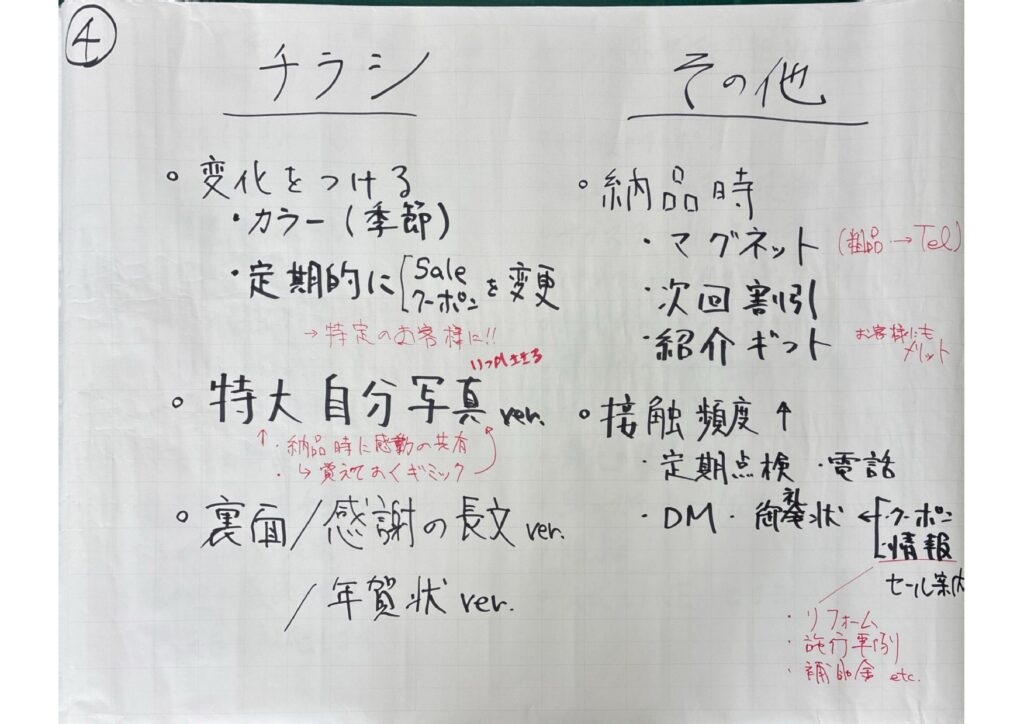 ④
チラシ
。変化をつける
・カラー(季節)
・定期的に[Sale クーポンを変更
→特定のお客様に!!
。特大 自分 写真 ver.
↑・納品時に感動の共有
・↳覚えておくギミック
。裏面/感謝の長文 ver.
/年賀状 ver.
その他
。納品時
・マグネット (粗品→Tel)
・次回割引
・紹介ギフト お客様にもメリット
。接触頻度↑
・定期点検 ・電話
・DM ・御礼状 ←[・クーポン
・情報
セール案内
・リフォーム
・施行事例
・補助金 etc.